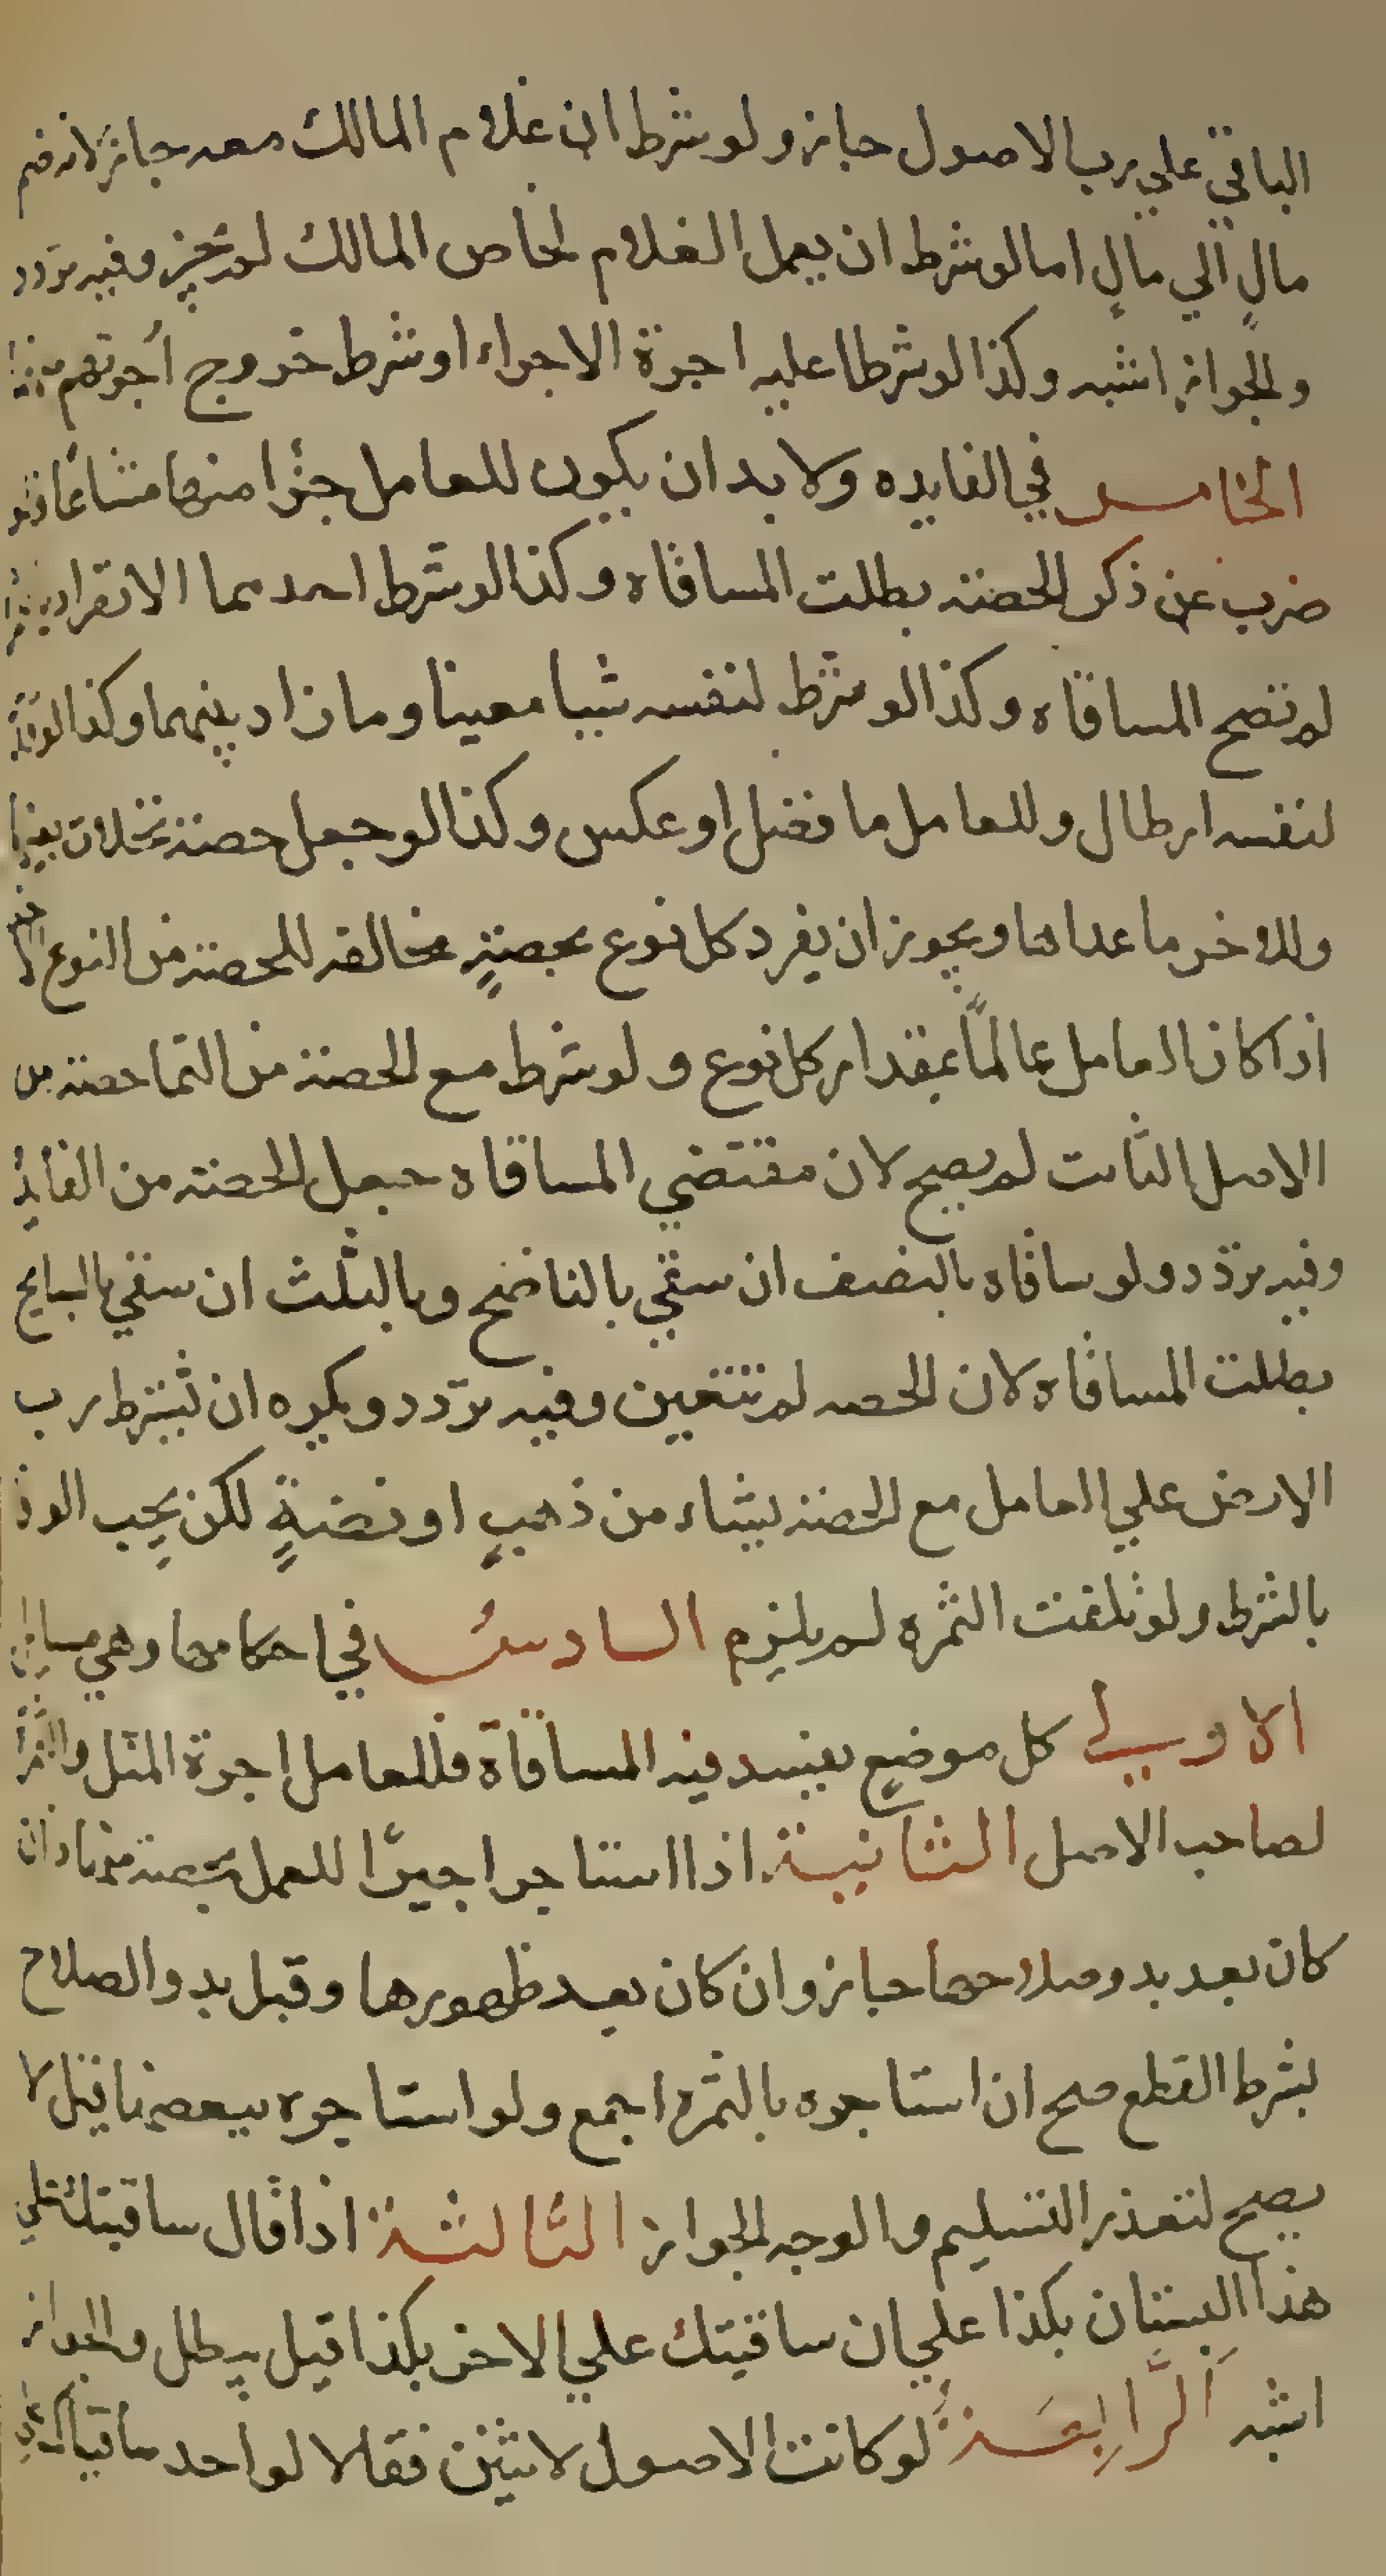 الباقي علي رب الاصول جايز ولو شرط ان غلام المالك معه جايز لانه ضم
مالٍ الي مالٍ اما لو شرط ان يعمل الغلام لخاص المالك لم يجز وفيه تردد
والجواز اشبه وكذا لو شرطا عليه اجرة الاجراء او شرط خروج أجرتهم منها
الخامس في الفايده ولا بد ان يكون للعامل جزٔا منها مشاعًا فلو
ضرب عن ذكر الحصة بطلت المساقاه وكذا لو شرط احدهما الانفراد
لم تصح المساقاه وكذا لو شرط لنفسه شيا معينا وما زاد بينهما وكذا لو
لنفسه ارطال وللعامل ما فضل او عكس وكذا لو جعل حصة نخلات بعينها
وللاخر ما عداها ويجوز ان يفرد كل نوع بحصةٍ مخالفه للحصة من النوع الاخر
اذا كان العامل عالمًا بمقدار كل نوع ولو شرط مع الحصة من النما حصة من
الاصل الثابت لم يصح لان مقتضي المساقاه جعل الحصة من الفايد
وفيه تردد ولو ساقاه بالنصف ان سقي بالناضح وبالثلث ان سقي بالسايح
بطلت المساقاه لان الحصه لم تتعين وفيه تردد ويكره ان يشترط رب
الارض علي العامل مع الحصة بشاء من ذهبٍ او فضةٍ لكن يجب الوفا
بالشرط ولو تلفت الثمره لم يلزم السادس في احكامها وهي مسايل
الاولي كل موضع يفسد فيه المساقاة فللعامل اجرة المثل والثمرة
لصاحب الاصل الثانية اذا استاجر اجيرًا للعمل بحصة منها فان
كان بعد بدو صلاحها جايز وان كان بعد ظهورها وقبل بدو الصلاح
بشرط القطع صح ان استاجره بالثمره اجمع ولو استاجره ببعضها قيل لا
يصح لتعذر التسليم والوجه الجواز الثالثة اذا قال ساقيتك علي
هذا البستان بكذا علي ان ساقيتك علي الاخر بكذا قيل يبطل والجواز
اشبه اَلرَّابِعَة لو كانت الاصول لاثنين فقالا لواحد ساقياك علي